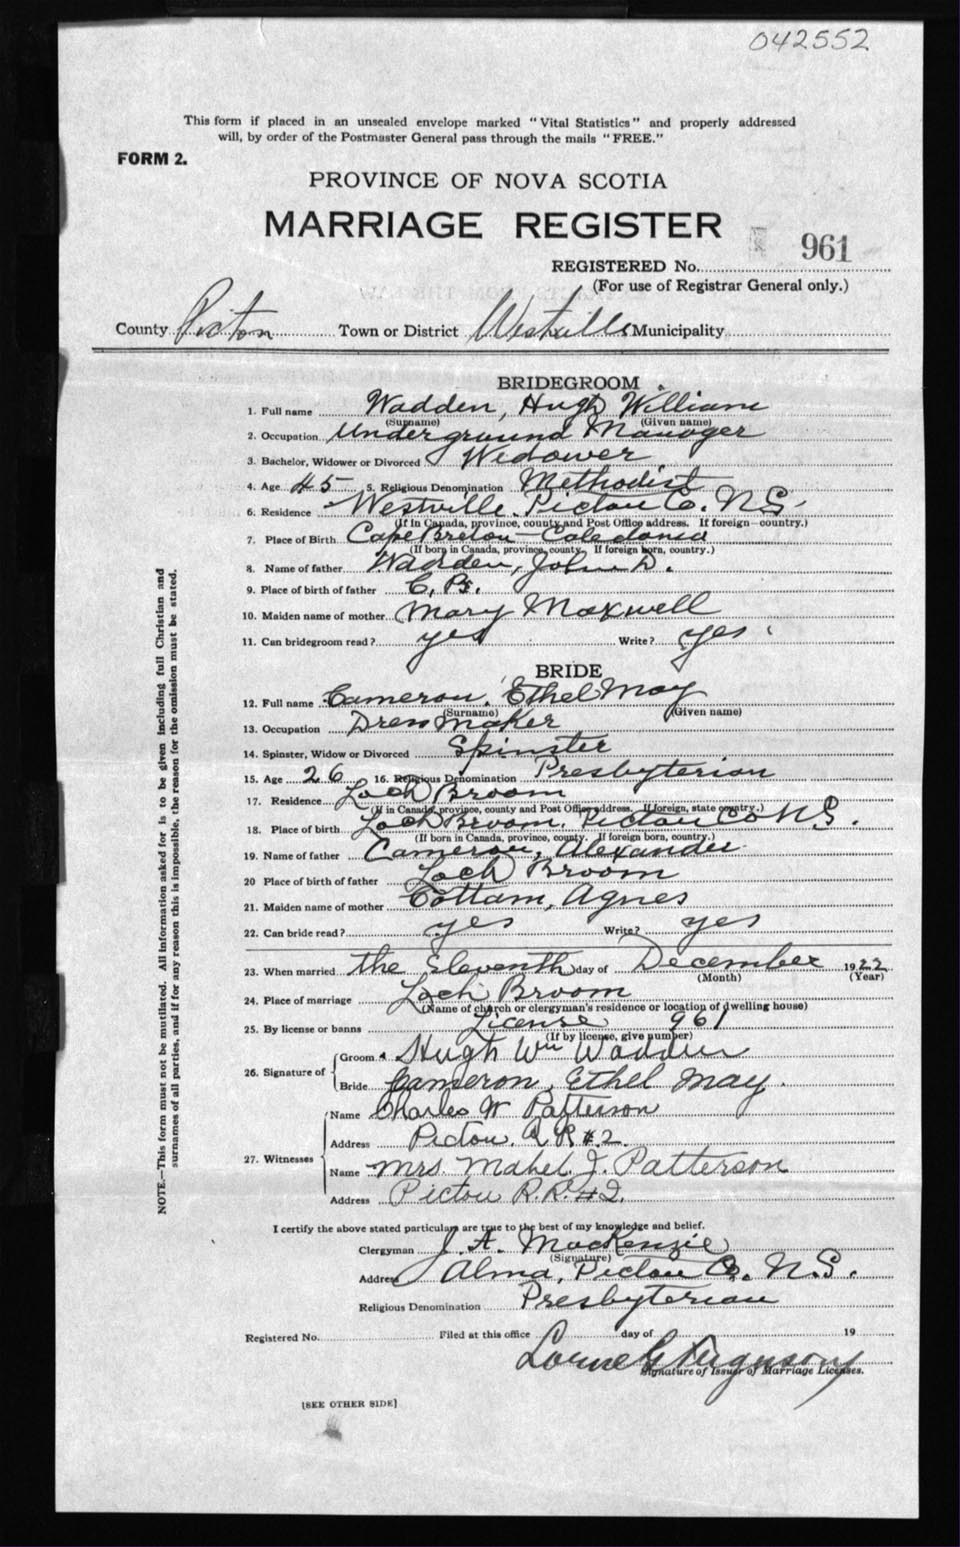 042552
This form if placed in an unsealed envelope marked "Vital Statistics" and properly addressed
will, by order of the Postmaster General pass through the mails "FREE."
FORM 2.
PROVINCE OF NOVA SCOTIA
MARRIAGE REGISTER
REGISTERED No. 961
(For use of Registrar General only.)
County Picton Town or District Westville Municipality
BRIDEGROOM
1. Full name Wadden, Hugh William
(Surname) (Given name)
2. Occupation Underground Manager
3. Bachelor, Widower or Divorced Widower
4. Age 45 5. Religious Denomination Methodist
6. Residence Westville Pictou Co. N.S.
(If in Canada, province, county and Post Office address. If foreign—country.)
7. Place of Birth Cape Breton - Caledonia
(If born in Canada, province, county. If foreign born, country.)
8. Name of father Wadden, John D.
9. Place of birth of father C.B.
10. Maiden name of mother Mary Maxwell
11. Can bridegroom read? yes Write? yes
BRIDE
12. Full name Cameron, Ethel May
(Surname) (Given name)
13. Occupation Dress Maker
14. Spinster, Widow or Divorced Spinster
15. Age 26 16. Religious Denomination Presbyterian
17. Residence Loch Broom
(If in Canada, province, county and Post Office address. If foreign, state country.)
18. Place of birth Loch Broom, Pictou Co N.S.
(If born in Canada, province, county. If foreign born, country.)
19. Name of father Cameron, Alexander
20 Place of birth of father Loch Broom
21. Maiden name of mother Cottam, Agnes
22. Can bride read? yes Write? yes
23. When married the Eleventh day of December 1922
(Month) (Year)
24. Place of marriage Loch Broom
(Name of church or clergyman's residence or location of dwelling house)
25. By license or banns License 961
(If by license, give number)
26. Signature of
Groom Hugh Wm Wadden
Bride Cameron, Ethel May.
27. Witnesses
Name Charles W Patterson
Address Pictou R R #2
Name Mrs Mabel J. Patterson
Address Pictou R.R. #2.
I certify the above stated particulars are true to the best of my knowledge and belief.
Clergyman J. A. MacKenzie
(Signature)
Address Alma, Pictou Co. N.S.
Religious Denomination Presbyterian
Registered No. Filed at this office day of 19
Lorne G Ferguson
Signature of Issuer of Marriage Licenses.
[SEE OTHER SIDE]
NOTE.—This form must not be mutilated. All information asked for is to be given including full Christian and
surnames of all parties, and if for any reason this is impossible, the reason for the omission must be stated.